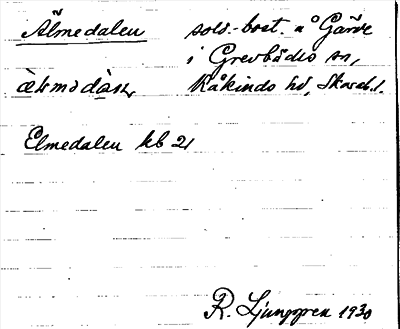 Älmedalen sold.-bost. å Gärde
i Grevbäcks sn,
Kåkinds hd, Skarab. l.
Elmedalen kb 21
R. Ljunggren 1930